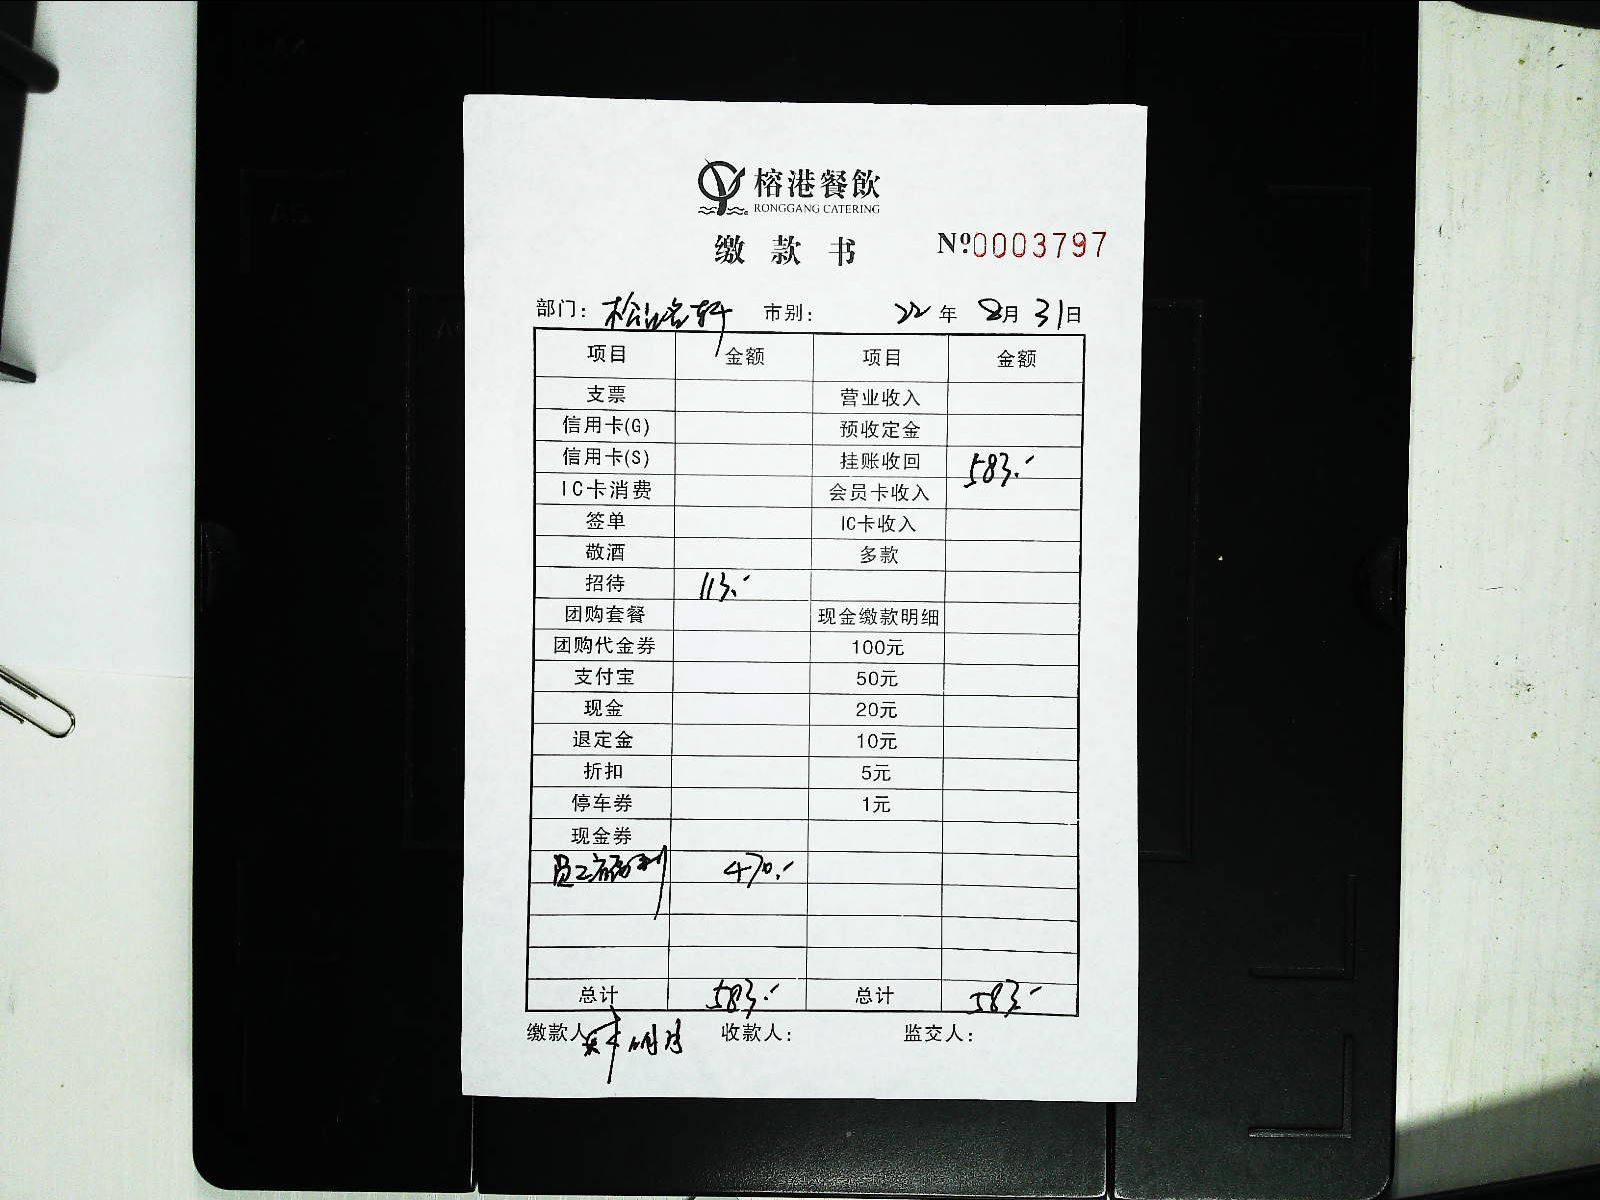 榕港餐飲
RONGGANG CATERING
缴款书 Nº0003797
部门: 松江名轩 市别: 22年 8月 31日
项目 金额 项目 金额
支票 营业收入
信用卡(G) 预收定金
信用卡(S) 挂账收回 583.-
IC卡消费 会员卡收入
签单 IC卡收入
敬酒 多款
招待 113.-
团购套餐 现金缴款明细
团购代金券 100元
支付宝 50元
现金 20元
退定金 10元
折扣 5元
停车券 1元
现金券
员工福利 470.-
总计 583.- 总计 583.-
缴款人 明 收款人: 监交人: